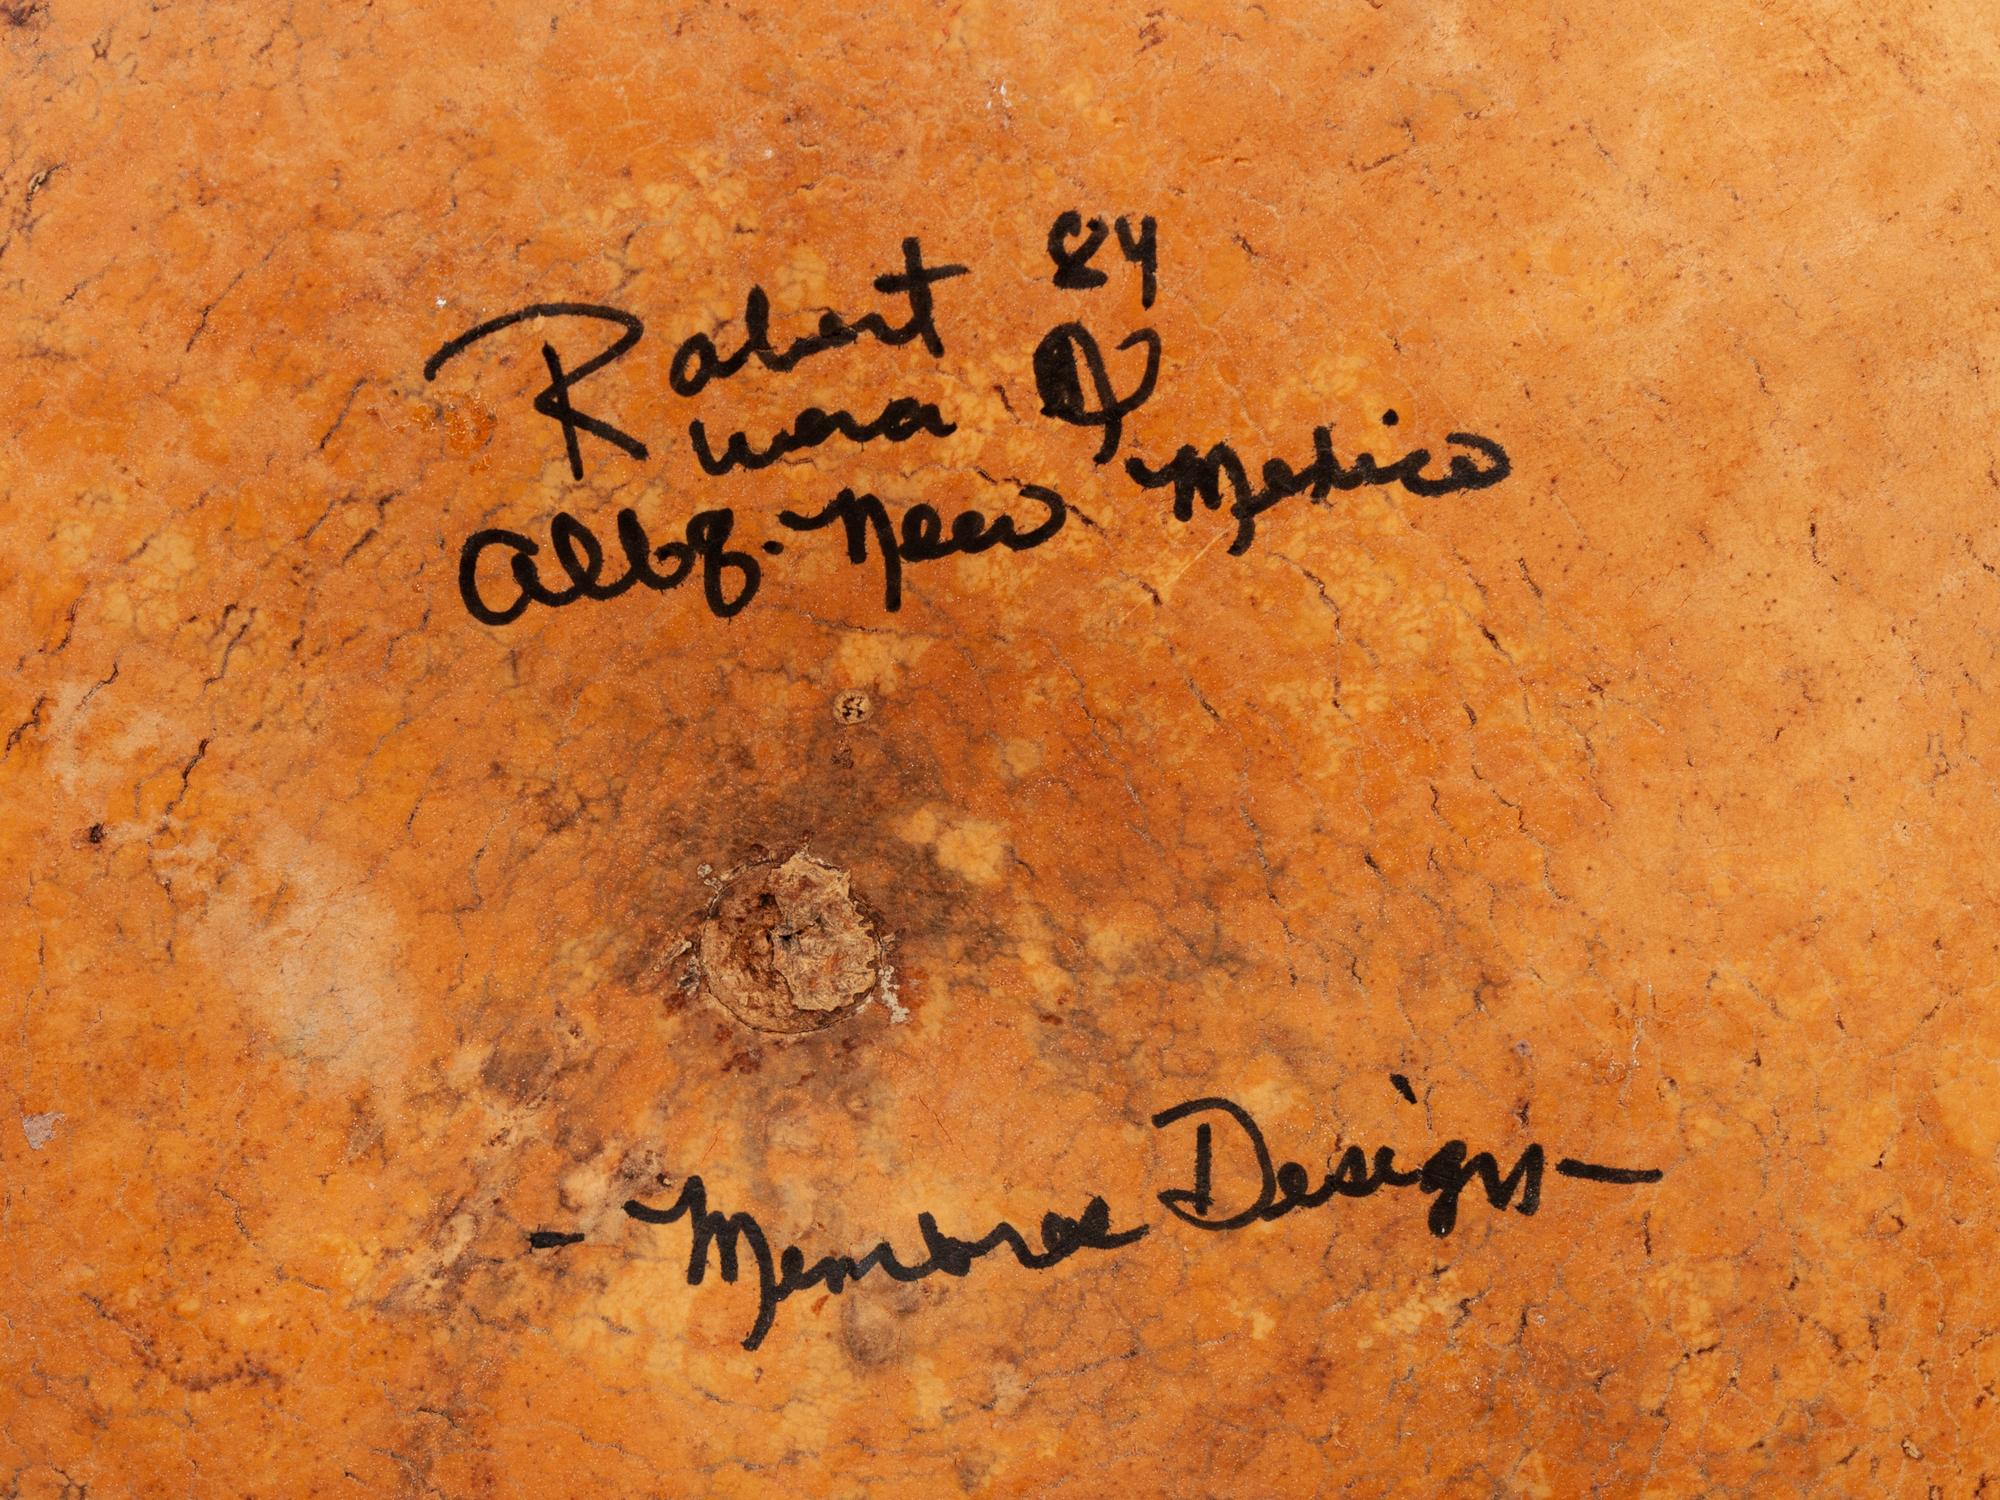 Robert 84
Rivera
Albq. New Mexico
- Membres Designs -